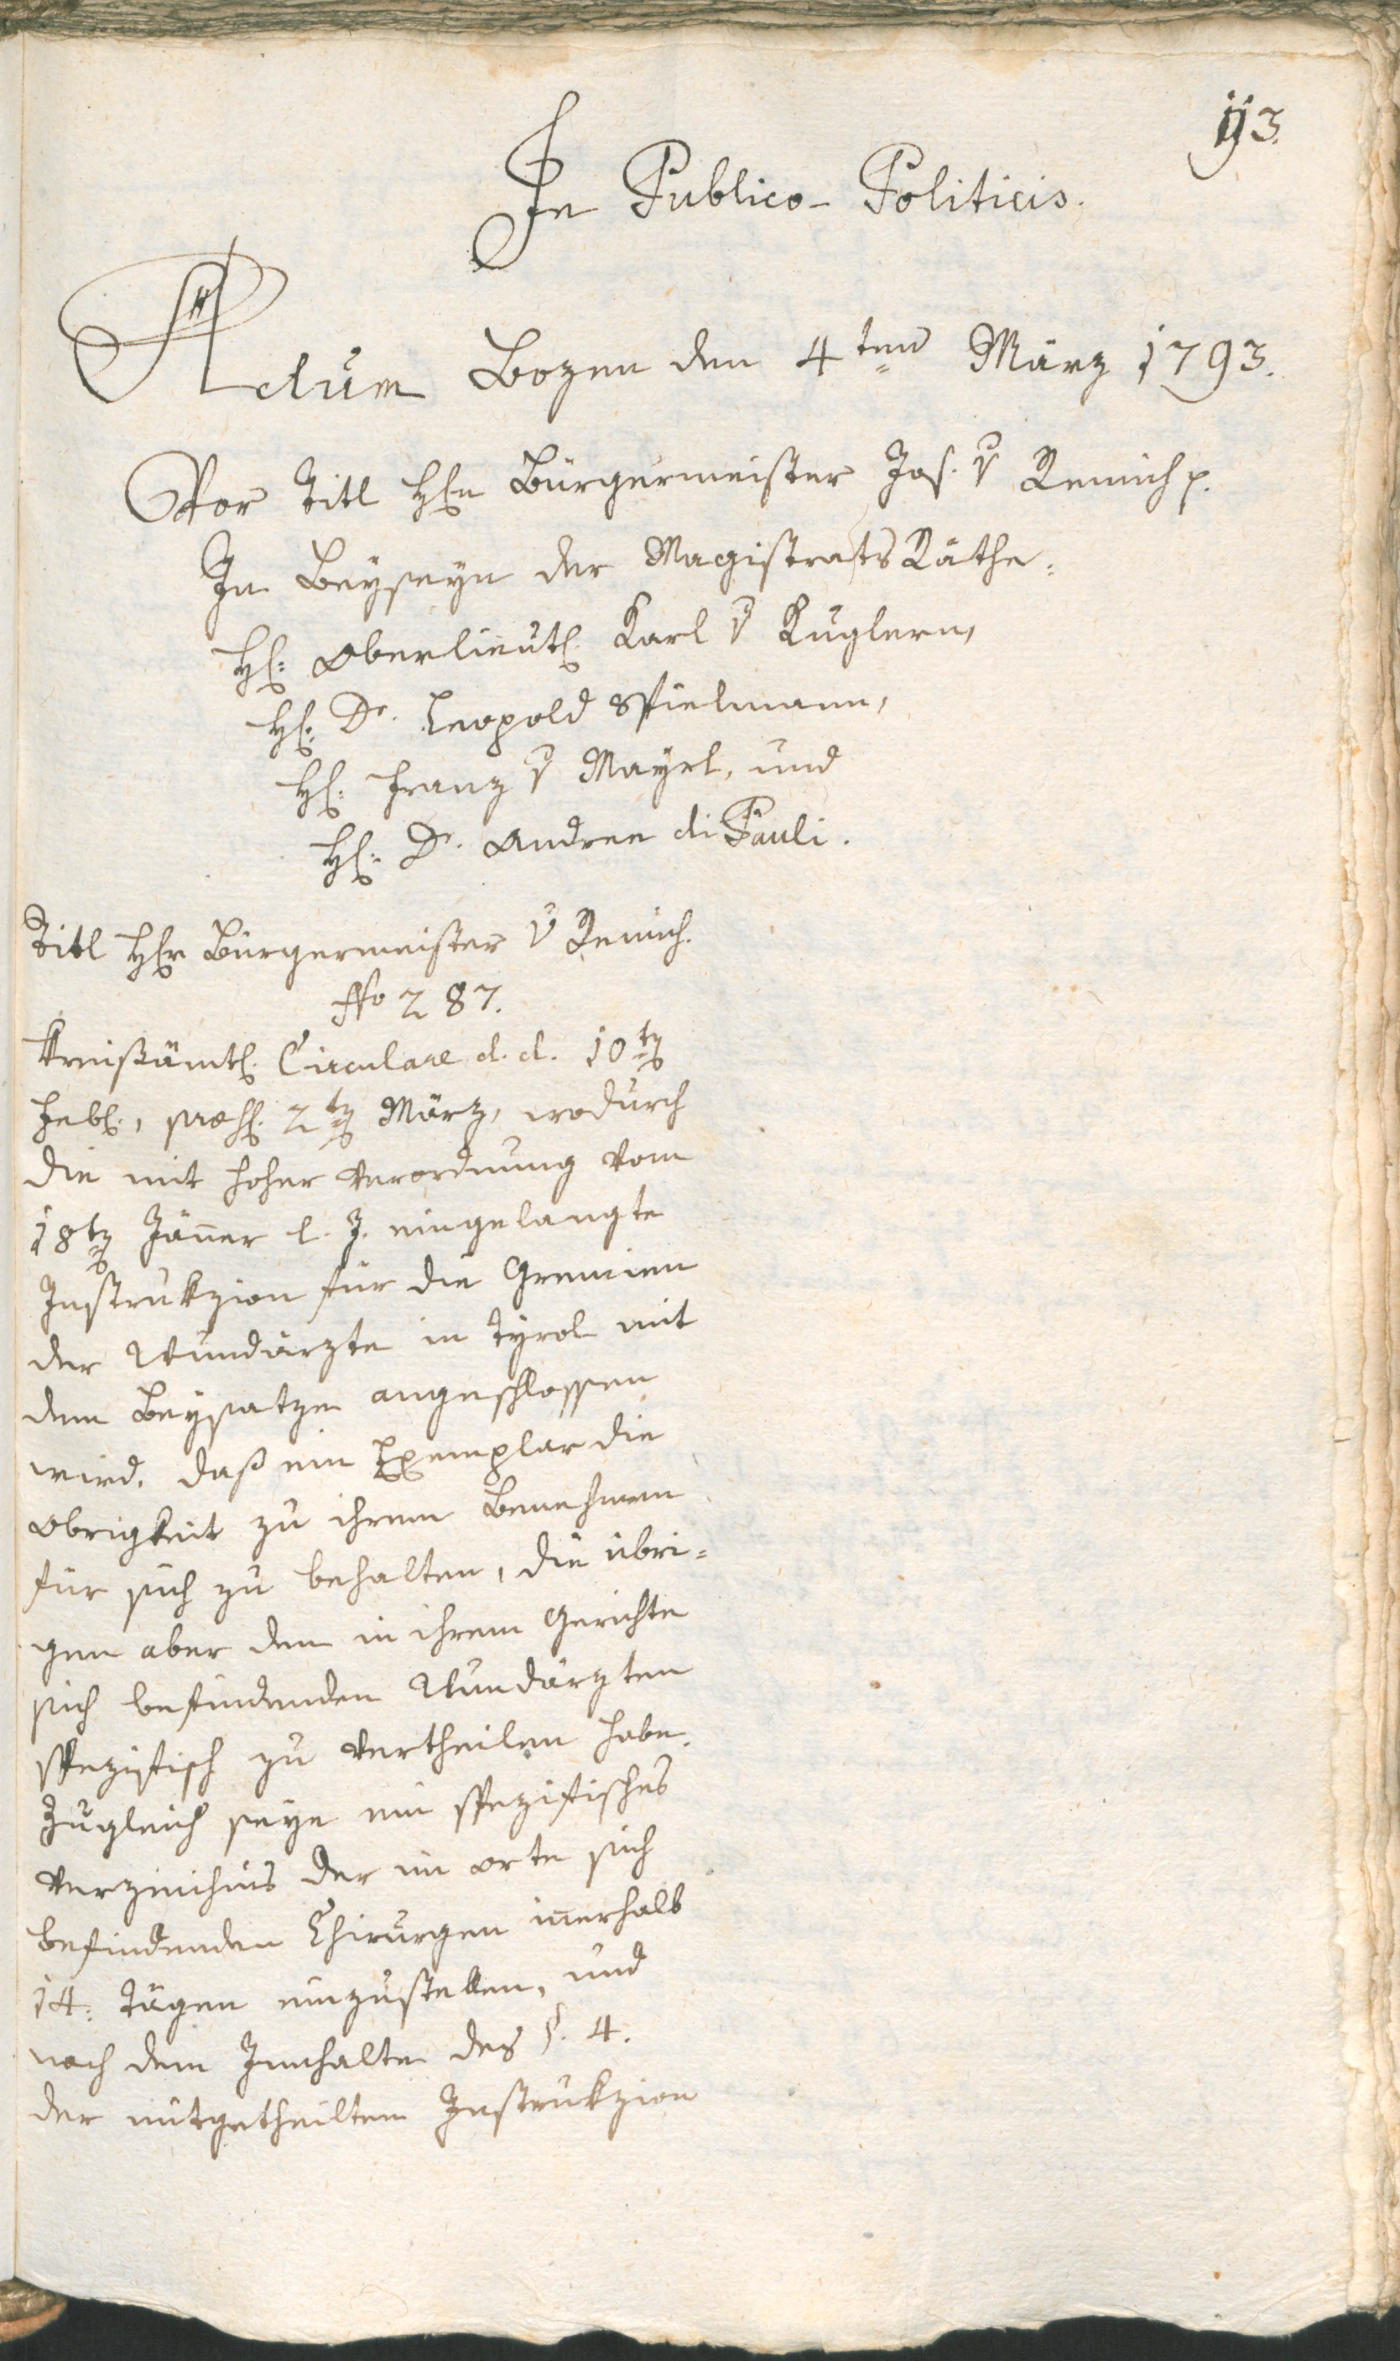 113.
In Publico-Politicis.
Actum Bozen den 4ten März 1793.
Vor Titl Hhn Bürgermeister Jos. v Remich p.
In Beyseyn der Magistrats Räthe:
H: Oberlieut. Karl v Kuglern,
H: Dr. Leopold Spielmann,
H: Franz v Mayrl, und
H: Dr. Andree di Pauli.
Titl Hhr Bürgermeister v Remich.
No 287.
Kreisämtl. Circulare d. d. 10tn
Feb., praes. 2tn März, wodurch
die mit hoher Verordnung vom
18tn Jäner l. J. eingelangte
Instrukzion für die Gremien
der Wundärzte in Tyrol mit
dem Beysatze angeschlossen
wird, daß ein Exemplar die
Obrigkeit zu ihrem Benehmen
für sich zu behalten, die übri=
gen aber den in ihrem Gerichte
sich befindenden Wundärzten
spezifisch zu vertheilen habe.
Zugleich seye ein spezifisches
Verzeichnis der im Orte sich
befindenden Chirurgen inerhalb
14: Tägen einzustellen, und
nach dem Innhalte des §. 4.
der mitgetheilten Instrukzion